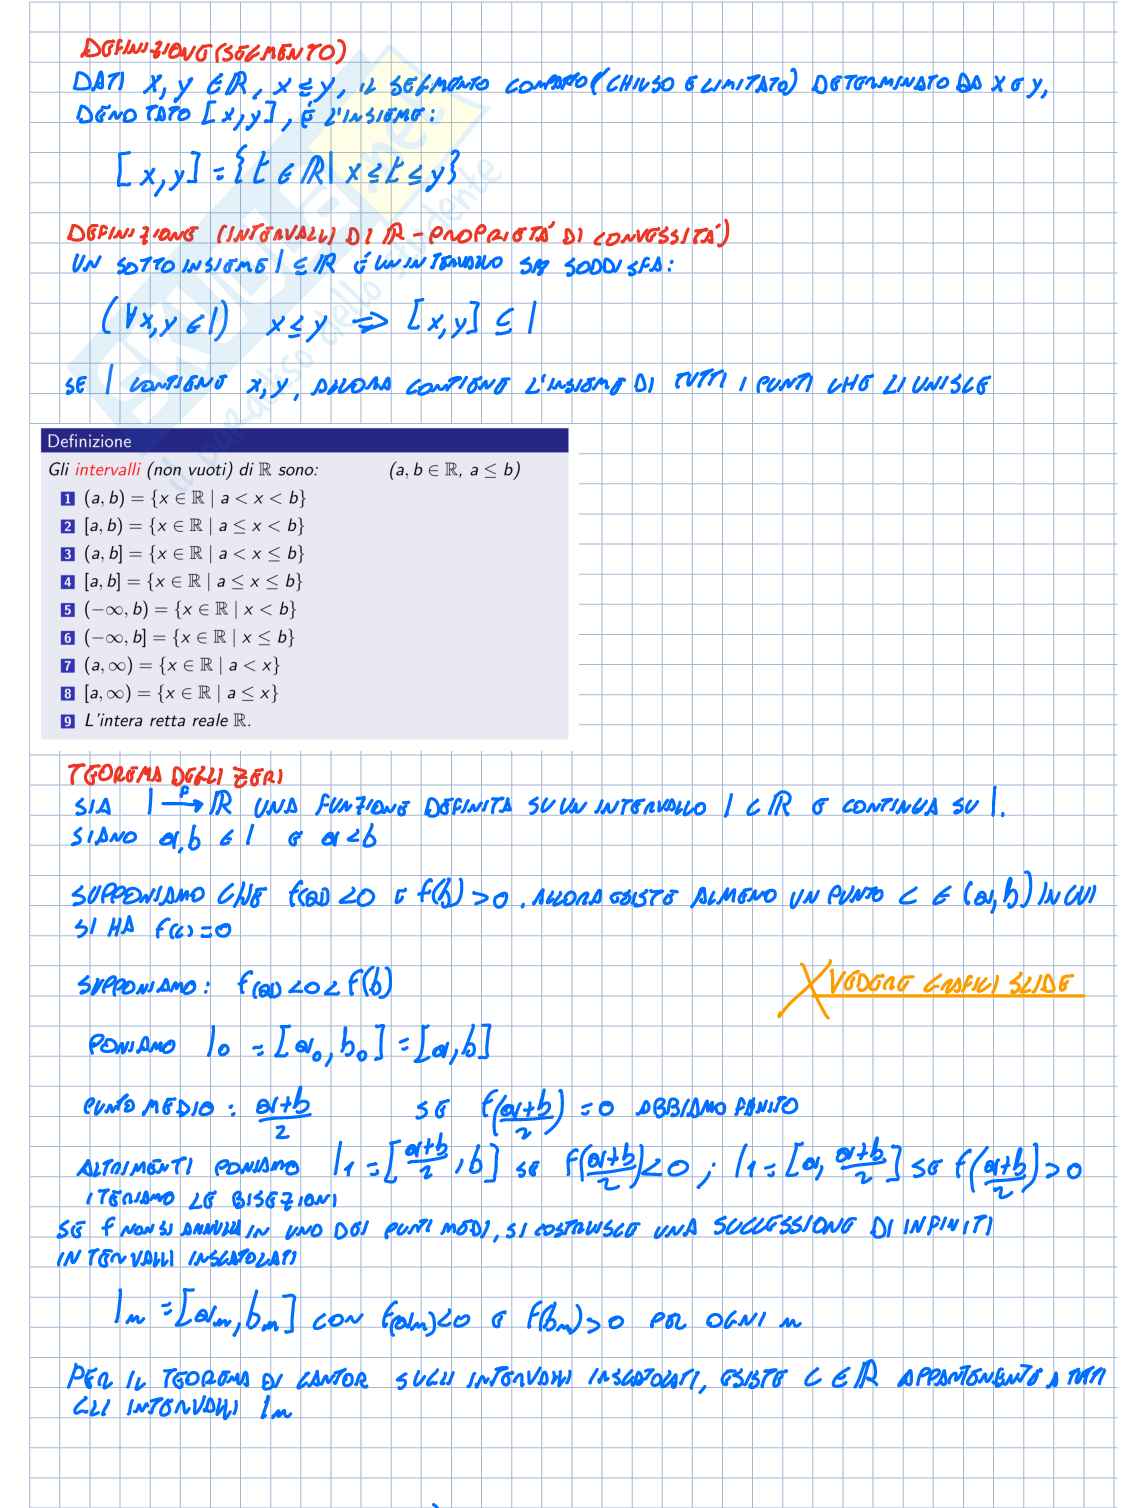 DEFINIZIONE (SEGMENTO)
DATI x, y ∈ ℝ, x ≤ y, IL SEGMENTO COMPATTO (CHIUSO E LIMITATO) DETERMINATO DA x E y,
DENOTATO [x,y], È L'INSIEME:
[x,y] = {t ∈ ℝ | x ≤ t ≤ y}
DEFINIZIONE (INTERVALLI DI ℝ - PROPRIETÀ DI CONVESSITÀ)
UN SOTTOINSIEME I ⊆ ℝ È UN INTERVALLO SE SODDISFA:
(∀x,y ∈ I) x ≤ y ⇒ [x,y] ⊆ I
SE I CONTIENE x, y, ALLORA CONTIENE L'INSIEME DI TUTTI I PUNTI CHE LI UNISCE
Definizione
Gli intervalli (non vuoti) di ℝ sono: (a, b ∈ ℝ, a ≤ b)
1 (a, b) = {x ∈ ℝ | a < x < b}
2 [a, b) = {x ∈ ℝ | a ≤ x < b}
3 (a, b] = {x ∈ ℝ | a < x ≤ b}
4 [a, b] = {x ∈ ℝ | a ≤ x ≤ b}
5 (−∞, b) = {x ∈ ℝ | x < b}
6 (−∞, b] = {x ∈ ℝ | x ≤ b}
7 (a, ∞) = {x ∈ ℝ | a < x}
8 [a, ∞) = {x ∈ ℝ | a ≤ x}
9 L'intera retta reale ℝ.
TEOREMA DEGLI ZERI
SIA I →f ℝ UNA FUNZIONE DEFINITA SU UN INTERVALLO I ⊂ ℝ E CONTINUA SU I.
SIANO a,b ∈ I E a<b
SUPPONIAMO CHE f(a) <0 E f(b) >0. ALLORA ESISTE ALMENO UN PUNTO c ∈ (a,b) IN CUI
SI HA f(c)=0
SUPPONIAMO: f(a) <0< f(b)
VEDERE GRAFICI SLIDE
PONIAMO I₀ = [a₀, b₀] = [a,b]
PUNTO MEDIO: (a+b)/2 SE f((a+b)/2) = 0 ABBIAMO FINITO
ALTRIMENTI PONIAMO I₁ = [(a+b)/2, b] SE f((a+b)/2)<0; I₁ = [a, (a+b)/2] SE f((a+b)/2)>0
ITERIAMO LE BISEZIONI
SE f NON SI ANNULLA IN UNO DEI PUNTI MEDI, SI COSTRUISCE UNA SUCCESSIONE DI INFINITI
INTERVALLI INSCATOLATI
Iₙ = [aₙ, bₙ] CON f(aₙ)<0 E f(bₙ)>0 PER OGNI n
PER IL TEOREMA DI CANTOR SUGLI INTERVALLI INSCATOLATI, ESISTE C ∈ ℝ APPARTENENTE A TUTTI
GLI INTERVALLI Iₙ